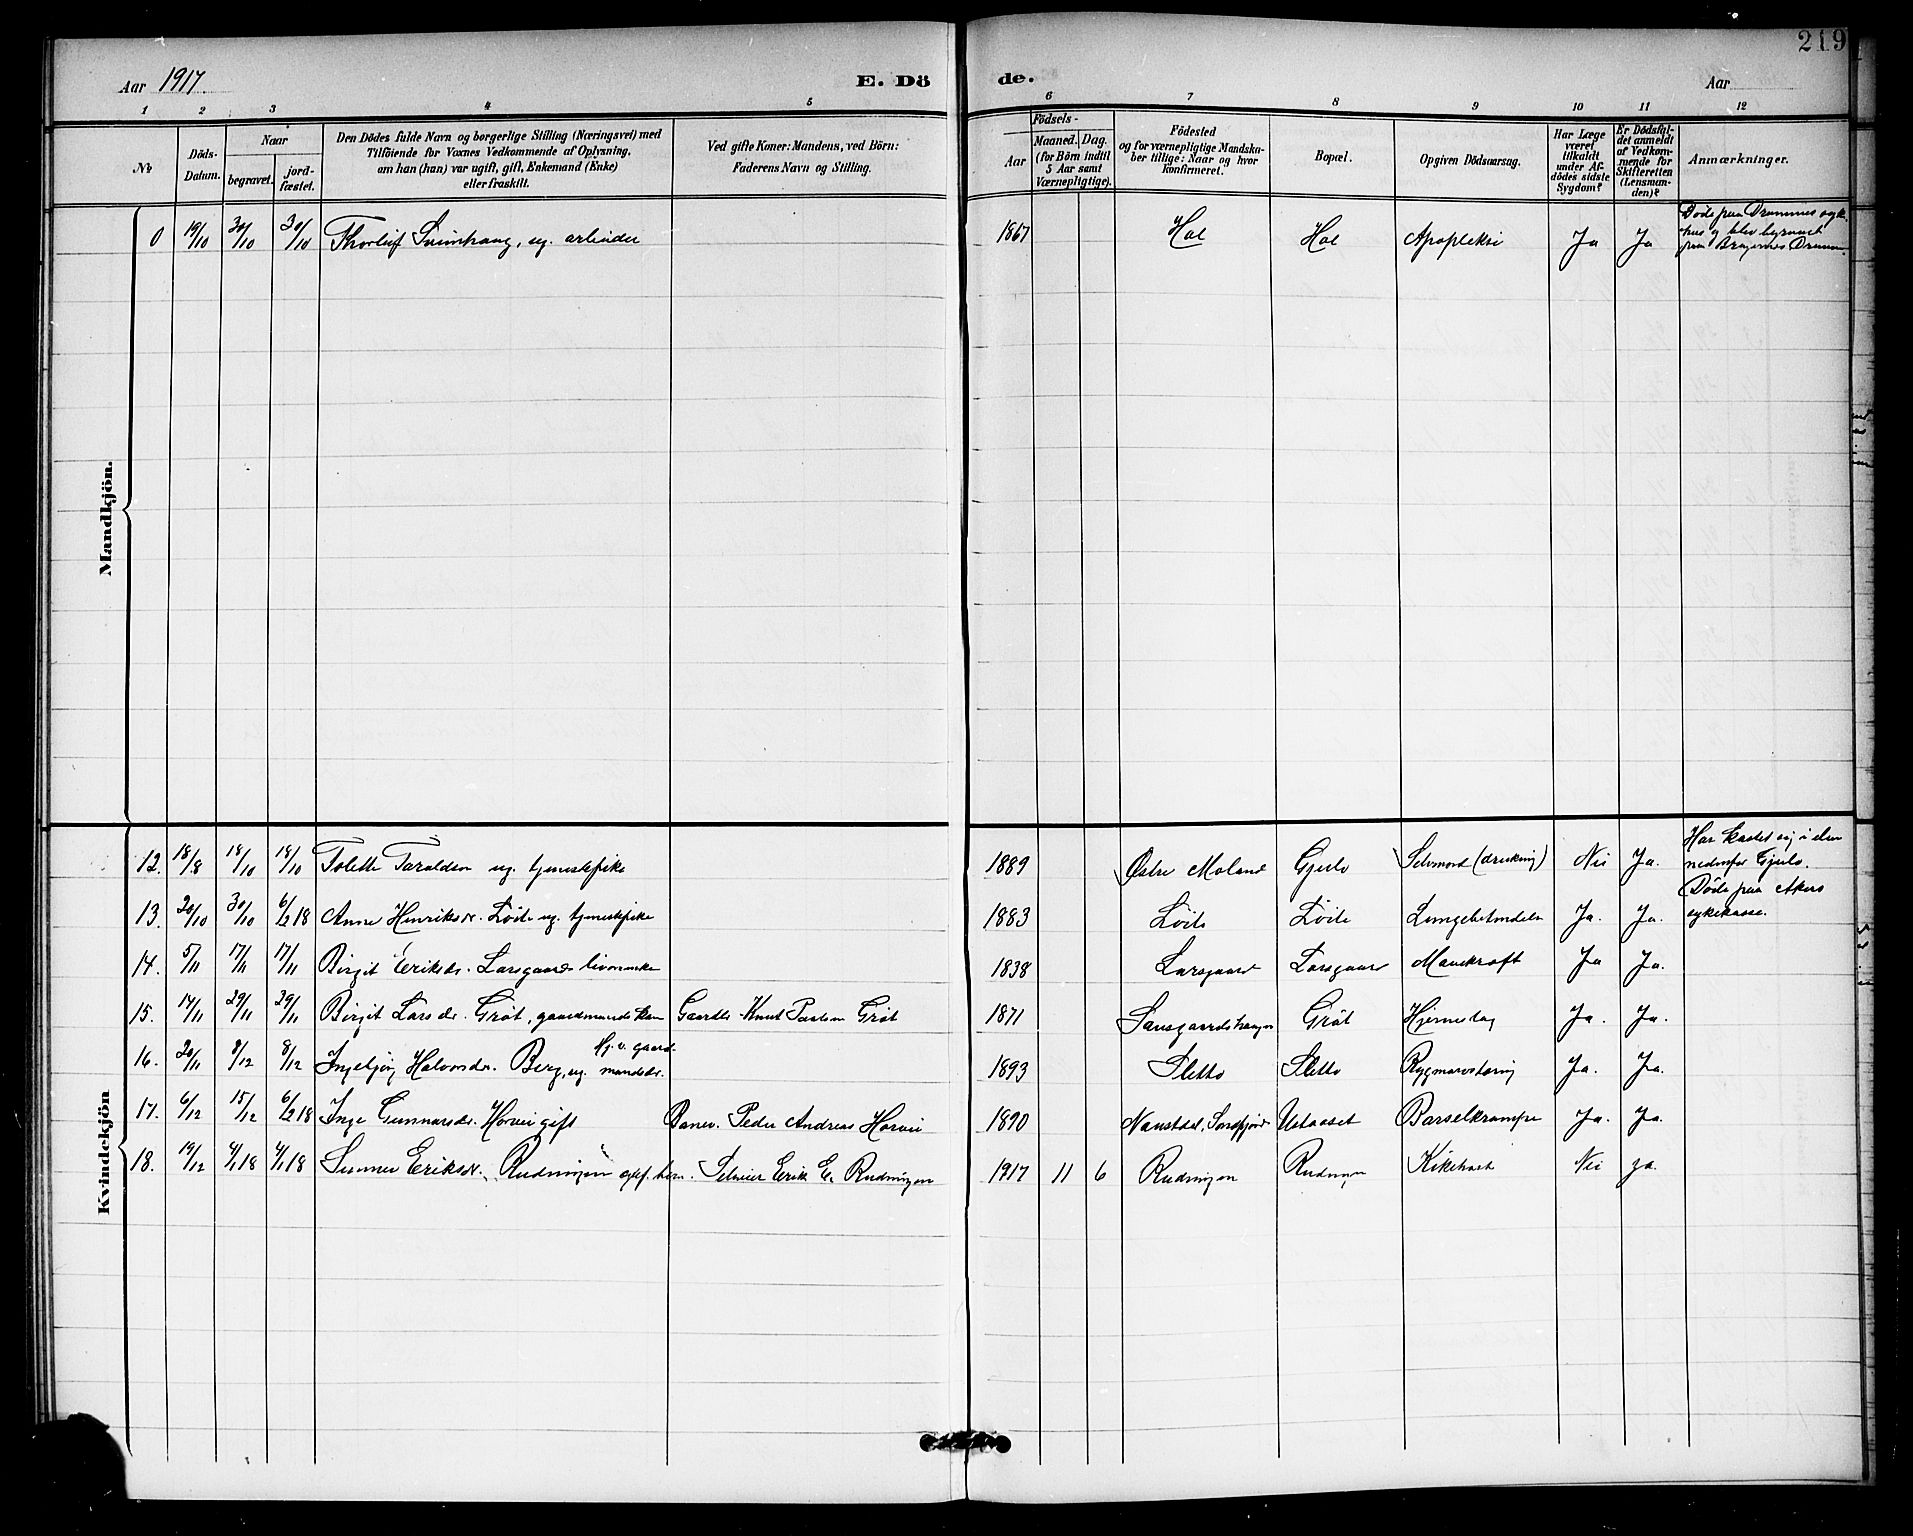 219
Aar 1917.
E. Dö de.
Aar
1 2 3 4 5 6 7 8 9 10 11 12
No
Döds-
Datum.
Naar
begravet.
jord-
fæstet.
Den Dödes fulde Navn og borgerlige Stilling (Næringsvei) med
Tilföiende for Voxnes Vedkommende af Oplysning,
om han (hun) var ugift, gift, Enkemand (Enke)
eller fraskilt.
Ved gifte Koner: Mandens, ved Börn:
Faderens Navn og Stilling.
Födsels-
Aar
Maaned. Dag.
(for Börn indtil
5 Aar samt
Værnepligtige).
Födested
og for værnepligtige Mandska-
ber tillige: Naar og hvor
konfirmeret.
Bopæl.
Opgiven Dödsaarsag.
Har Læge
været
tilkaldt
under Af-
dödes sidste
Sygdom?
Er Dödsfal-
det anmeldt
af Vedkom-
mende for
Skifteretten
(Lensman-
den)?
Anmærkninger.
Mandkjön.
0 19/10 30/10 30/10 Thorleif ug. arbeider 1867 Hol Hol Apopleksi Ja Ja Døde paa Drammens syke-
hus og blev begravet
paa Bragernes Drammen.
Kvindekjön
12. 18/8 18/10 18/10 Tolette Taraldsen ug. tjenestepike 1889 Østre Moland Gjeilo Selvmord (drukning) Nei Ja. Har kastet sig i elven
nedenfor Gjeilo.
13. 20/10 30/10 6/2 18 Anne Henriksdr. Löite ug. tjenestepike 1883 Löite Löite Lungebetændelse Ja. Ja. Døde paa Akers
sykekasse.
14. 5/11 17/11 17/11 Birgit Eriksdr. Larsgaard livøreenke 1838 Larsgaard Larsgaard Mavekræft Ja Ja.
15. 14/11 29/11 29/11 Birgit Larsdr. Gröt, gaardmandskone Gaardbr. Knut Paulsen Gröt 1871 Gröt Hjerneslag Ja. Ja.
16. 20/11 8/12 8/12 Ingebjörg Halvorsdr. Berg, ug. Hj.v. gaard-
mandsdr. 1893 Sletto Sletto Rygmarvstæring Ja. Ja.
17. 6/12 15/12 6/2 18 Inga Gunnarsdr. Horvei gift Banev. Peder Andreas Horvei 1890 Naustdal, Søndfjord Ustaoset Barselkrampe Ja. Ja.
18. 19/12 4/1 18 4/1 18 Eriksdr. Rudningen Selveier Erik E. Rudningen 1917 11 6 Rudningen Rudningen Kikhoste Nei ja.